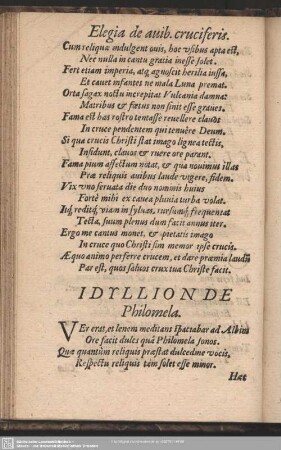 Elegia de avib. cruciferis.
Cum reliquæ indulgent ovis, hoc usibus apta est,
Nec nulla in cantu gratia inesse solet.
Fert etiam imperia, atq; agnoscit herilia iussa,
Et cavet infantes ne mala Luna premat.
Orta sagax noctu increpitat Vulcania damna:
Matribus & fœtus non sinit esse graves.
Fama est has rostro tentasse revellere clavos
In cruce pendentem qui tenuêre Deum.
Si qua crucis Christi stat imago lignea tectis,
Insidunt, clavos & ruere ore parant.
Fama pium affectum notat, & qua novimus illas
Præ reliquis avibus laude vigere, fidem.
Vix uno servata die duo nominis huius
Fortè mihi ex cavea plumea turba volat.
Itq; reditq; viam in sylvas, rursumq; frequentat
Tecta, suum plenus dum facit annus iter.
Ergo me cantus monet, & pietatis imago
In cruce quo Christi sim memor ipse crucis.
Æquo animo perferre crucem, et dare præmia laudũ
Par est, quos salvos crux tua Christe facit.
IDYLLION DE
Philomela.
VEr erat, et lenem meditans spatiabar ad Albim
Ore facit dulces quâ Philomela sonos.
Quæ quantùm reliquis præstat dulcedine vocis,
Respectu reliquis tàm solet esse minor.
Hæc